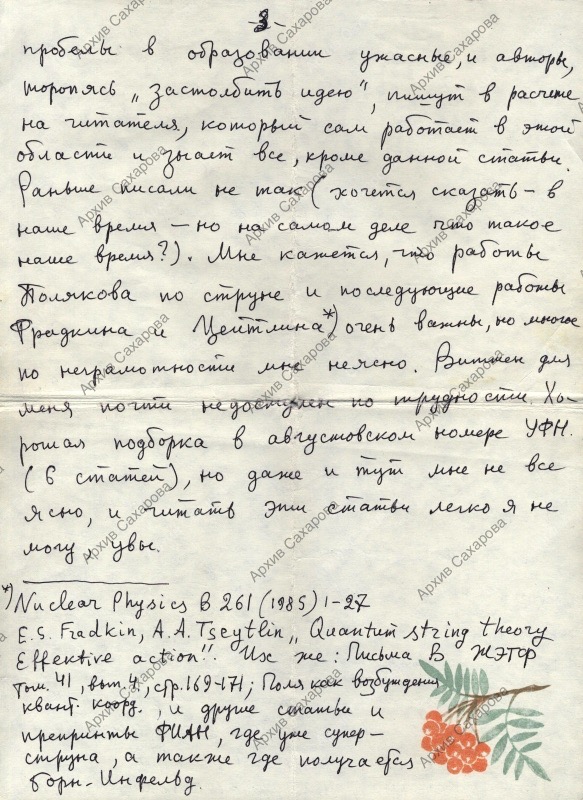 -3-
пробелы в образовании ужасные, и авторы,
торопясь „застолбить идею", пишут в расчете
на читателя, который сам работает в этой
области и знает все, кроме данной статьи.
Раньше писали не так (хочется сказать – в
наше время – но на самом деле что такое
наше время?). Мне кажется, что работы
Полякова по струне и последующие работы
Фрадкина и Цейтлина*) очень важны, но многое
по неграмотности мне неясно. Виттен для
меня почти недоступен по трудности. Хо-
рошая подборка в августовском номере УФН.
(6 статей), но даже и тут мне не все
ясно, и читать эти статьи легко я не
могу, увы.
*) Nuclear Physics B 261 (1985) 1-27
E.S. Fradkin, A.A. Tseytlin „Quantum string theory
Effektive action". Их же: Письма В ЖЭТФ
том. 41, вып. 4, стр. 169-171; Поля как возбуждения
квант. коорд., и другие статьи и
препринты ФИАН, где уже супер-
струна, а также где получается
Борн-Инфельд.
Архив Сахарова